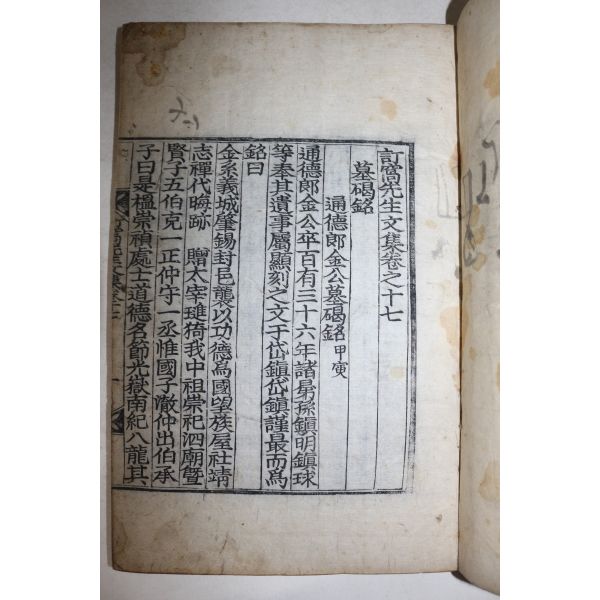 訂窩先生文集卷之十七
墓碣銘
通德郎金公墓碣銘 甲寅
通德郎金公卒百有三十六年諸晜孫鎭明鎭球
等奉其遺事屬顯刻之文于岱鎭岱鎭謹最而爲
銘曰
金系義城肇錫封邑襲以功德爲國望族屋社靖
志禪代晦跡 贈太宰璡猗我中祖崇祀泗廟曁
賢子五伯克一正仲守一丞惟國子澈仲出伯承
子曰是榲崇禎處士道德名節光嶽南紀八龍其